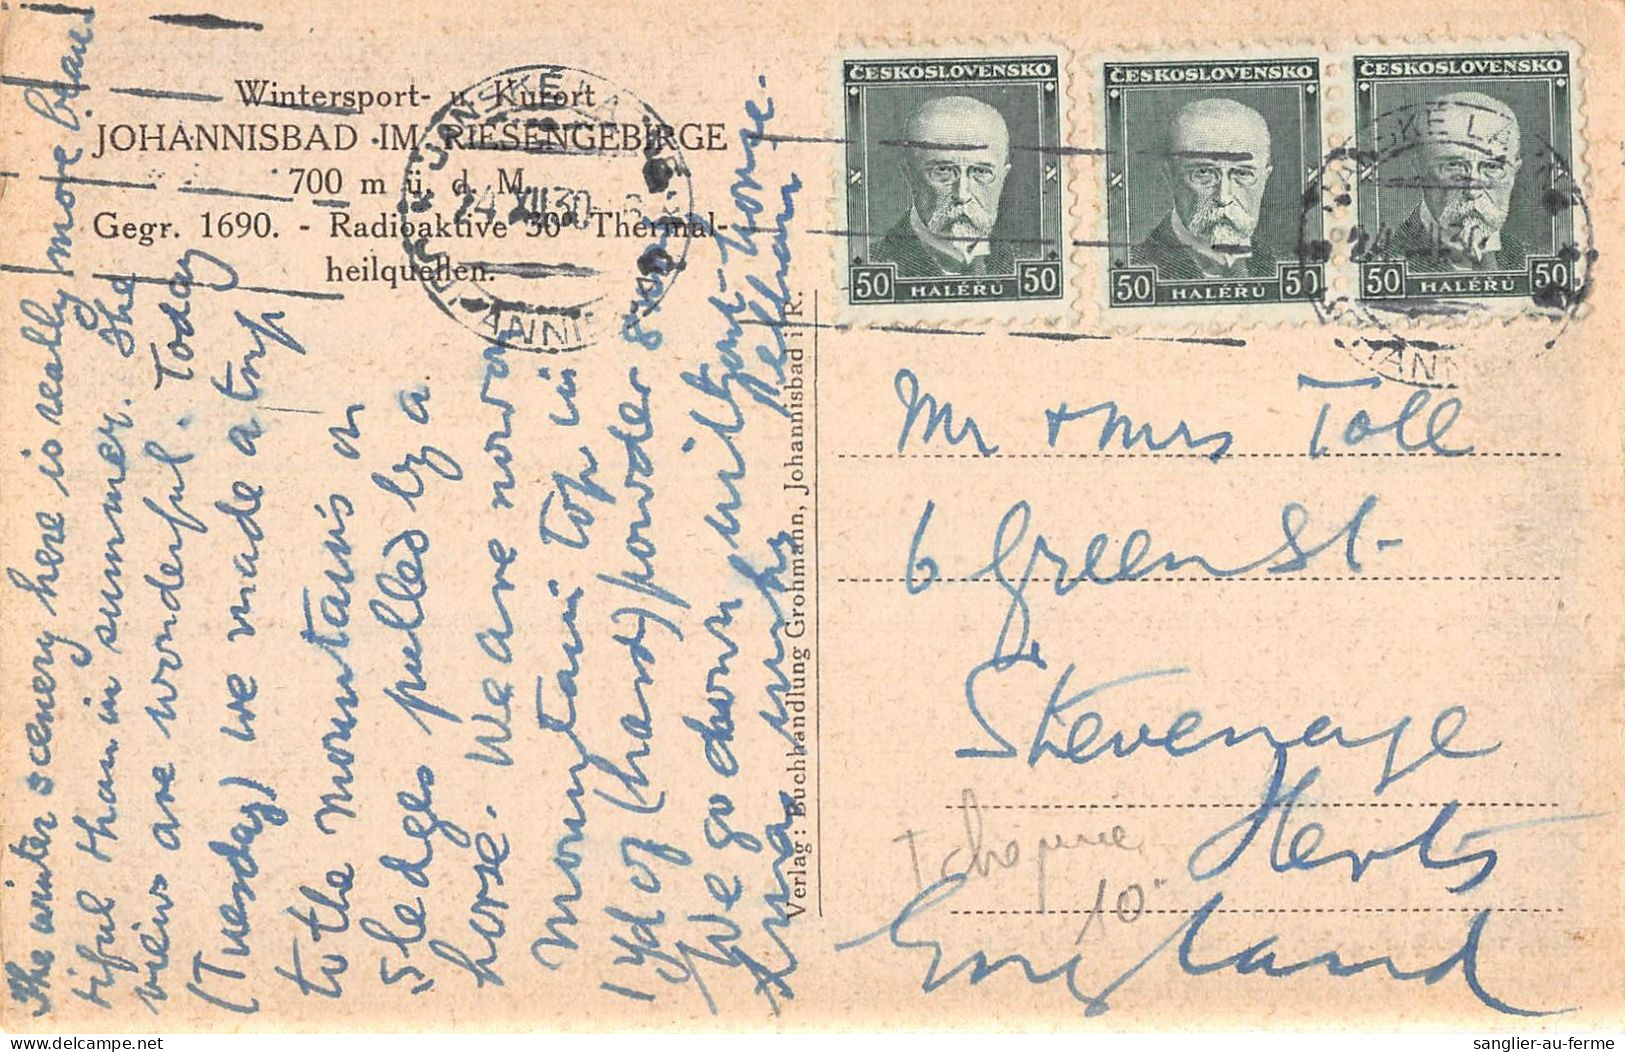 Wintersport- u. Kurort
JOHANNISBAD IM RIESENGEBIRGE
700 m ü. d. M.
Gegr. 1690. - Radioaktive 30° Thermal-
heilquellen.
JANSKÉ LÁZNĚ
24. XII 30
JOHANNISBAD
ČESKOSLOVENSKO
50 HALÉRŮ 50
ČESKOSLOVENSKO
50 HALÉRŮ 50
ČESKOSLOVENSKO
50 HALÉRŮ 50
The winter scenery here is really more beau
tiful than in summer. The
views are wonderful. Today
(Tuesday) we made a trip
to the mountains on
sledges pulled by a
horse. We are now on
mountain top in
1 yd of (hard) powder snow
We go down without horse.
Verlag: Buchhandlung Grohmann, Johannisbad i. R.
Mr + Mrs Toll
6 Green St-
Stevenage
Herts
England
Tchequie
10
sanglier-au-ferme